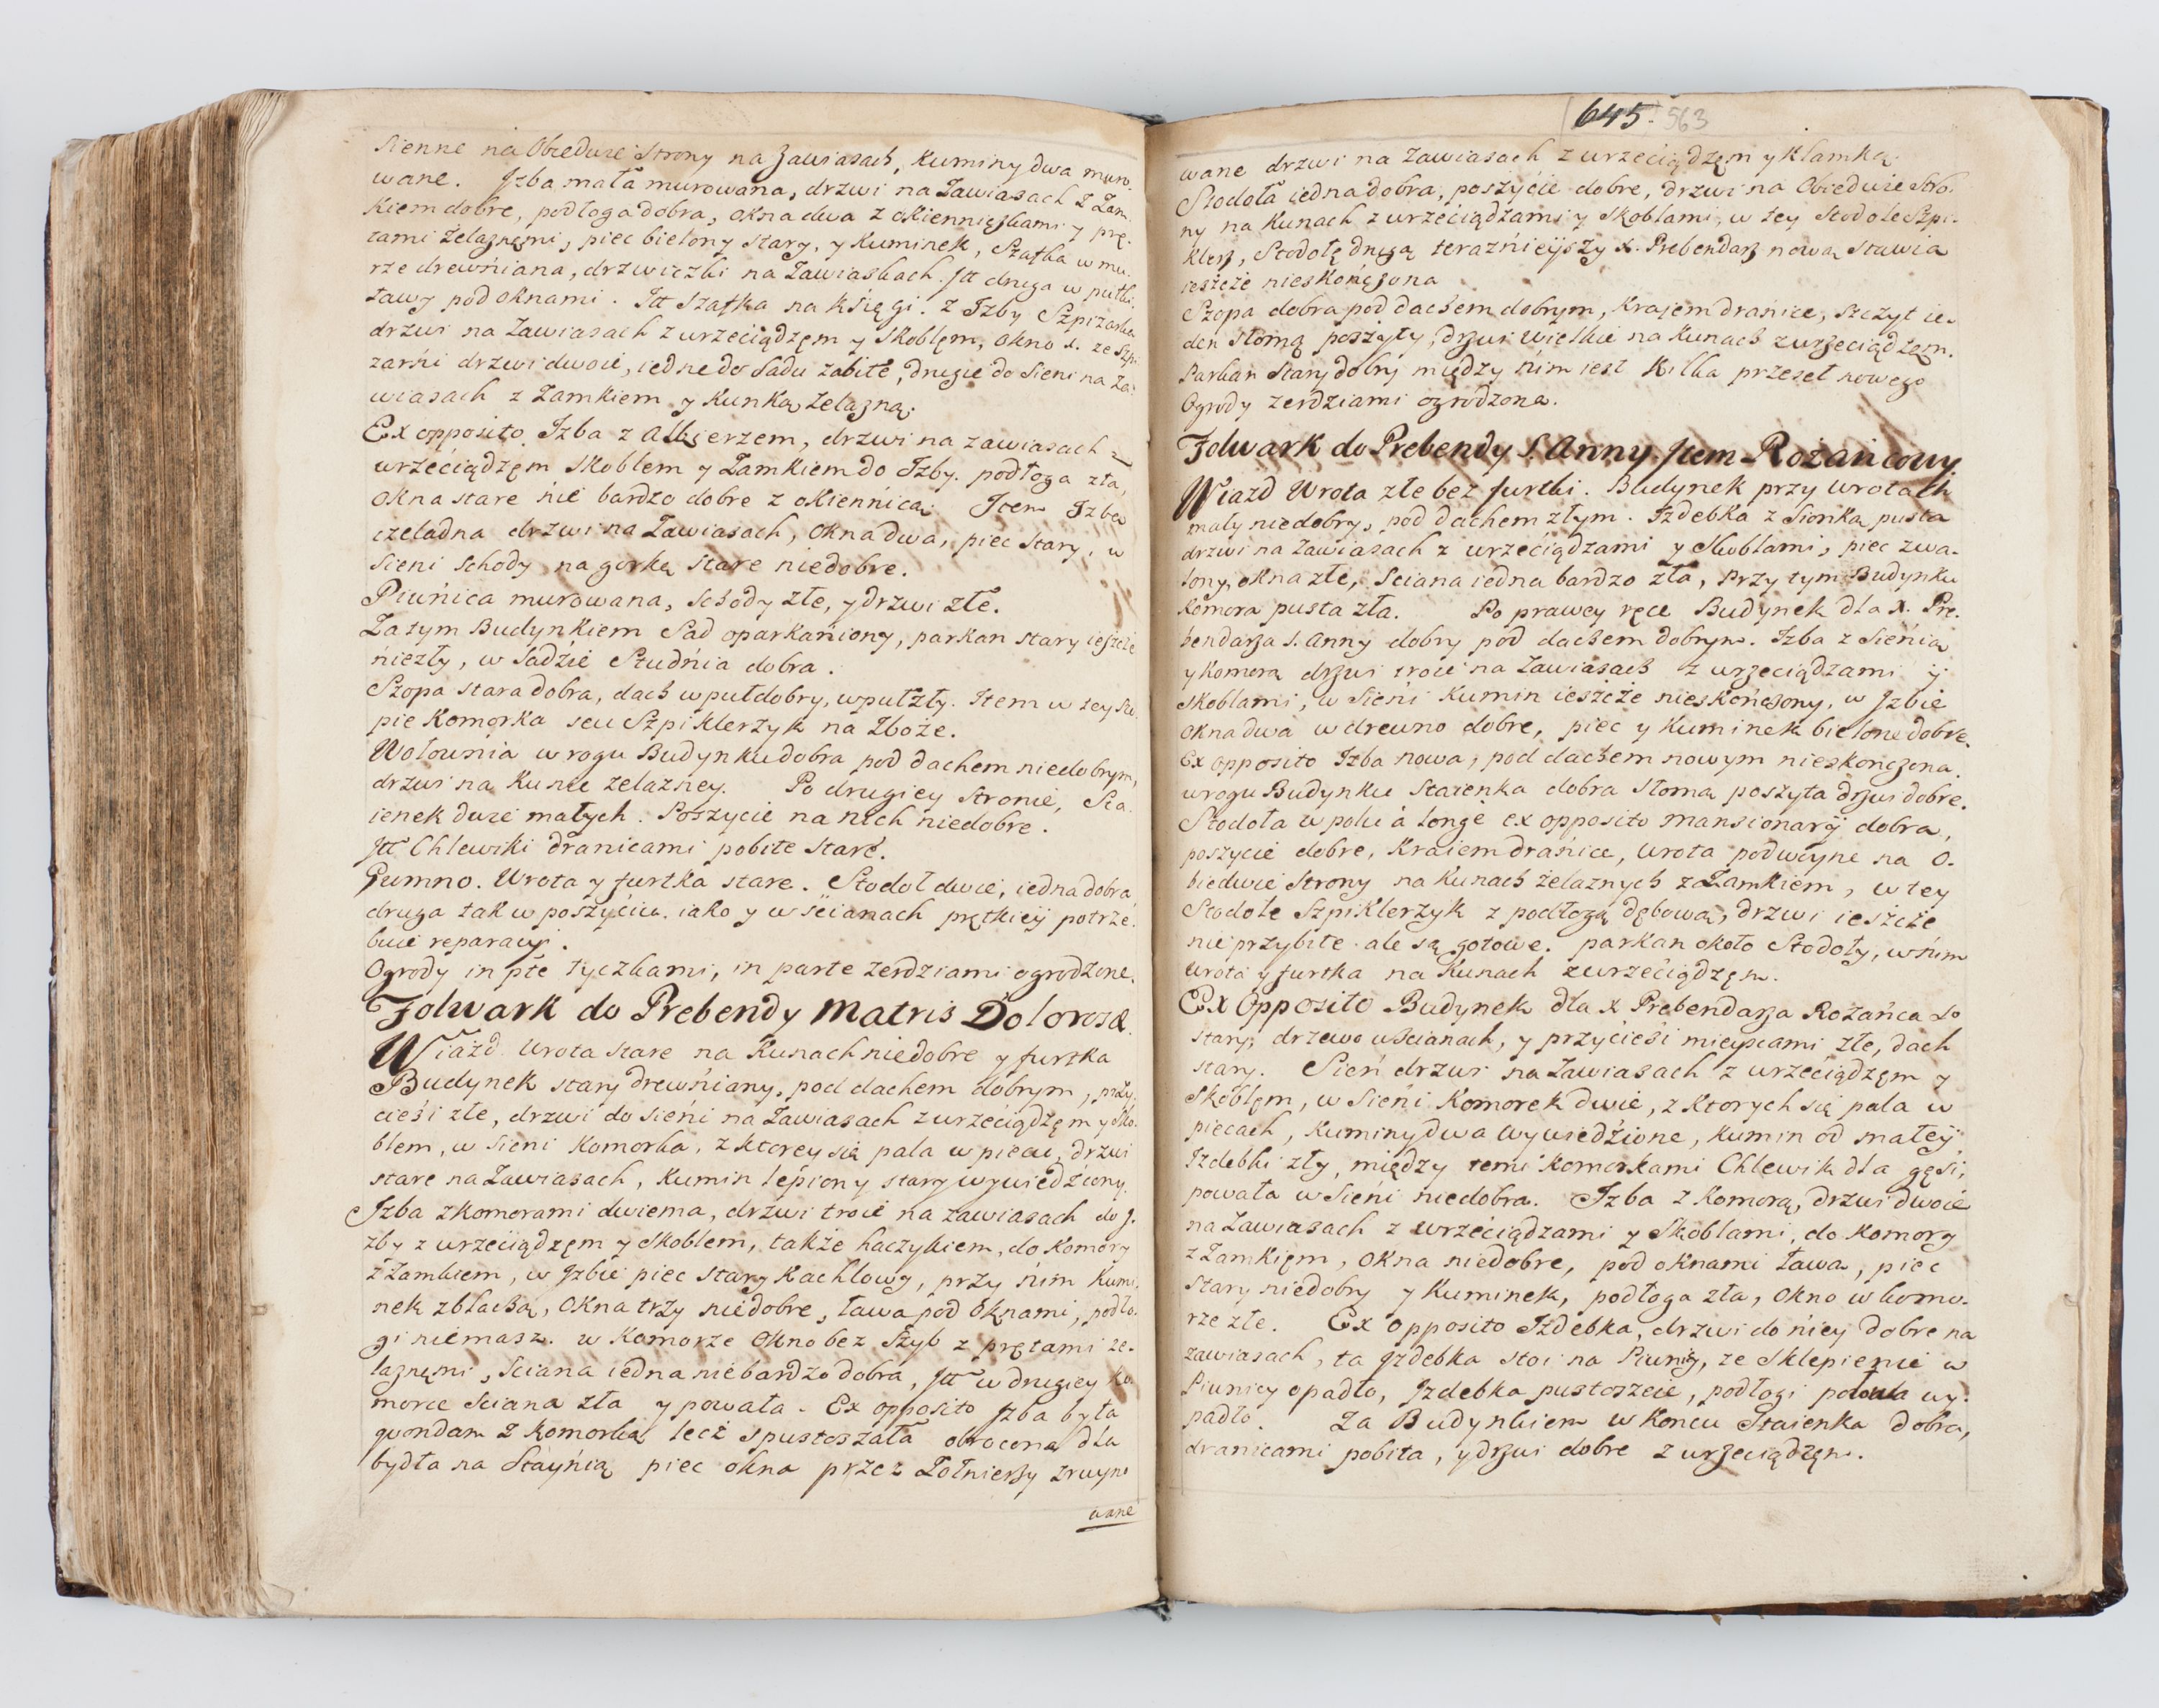 Sienne na Obiedwie Strony na Zawiasach, Kuminy dwa muro-
wane. Jzba mała murowana, drzwi na Zawiasach z Zam-
kiem dobre, podłoga dobra, okna dwa z okienniczkami y prę-
tami żelaznęmi, piec bielony stary, y Kuminek, Szafka w mu-
rze drewniana, drzwiczki na Zawiaskach. Jtt druga w pułki.
ławy pod oknami. Jtt szafka na księgi. z Jzby Szpizarka
drzwi na Zawiasach z wrzeciądzęm y Skoblęm, okno 1. ze Szpi-
zarni drzwi dwoie, iedne do Sadu zabite, drugie do Sieni na Za-
wiasach z Zamkiem y Kunką żelazną.
Ex opposito Jzba z Alkierzem, drzwi na zawiasach z
wrzeciądzęm Skoblem y Zamkiem do Jzby. podłoga zła,
okna stare nie bardzo dobre z okiennicą. Jtem Jzba
czeladna drzwi na Zawiasach, okna dwa, piec stary, w
Sieni Schody na gorkę stare niedobre.
Piwnica murowana, schody złe, y drzwi złe.
Za tym Budynkiem Sad oparkaniony, parkan stary ieszcze
niezły, w Sadzie Studnia dobra.
Szopa stara dobra, dach wpuł dobry, wpuł zły. Jtem w tey Szo
pie Komorka seu Szpiklerzyk na Zboże.
Wołownia w rogu Budynku dobra pod dachem niedobrym,
drzwi na Kunie żelazney. Po drugiey stronie, Sta-
ienek dwie małych. Poszycie na nich niedobre.
Jtt Chlewiki dranicami pobite stare.
Gumno. Wrota y furtka stare. Stodoł dwie, iedna dobra
druga tak w poszyciu iako y w ścianach prętkiey potrze-
buie reparacyi.
Ogrody in pte tyczkami, in parte żerdziami ogrodzone.
Folwark do Prebendy Matris Dolorosæ.
Wiazd Wrota stare na Kunach niedobre y furtka
Budynek stary drewniany, pod dachem dobrym, przy-
cieśi złe, drzwi do sieni na Zawiasach z wrzeciądzęm y Sko-
blem, w Sieni Komorka, z ktorey się pala w piecu, drzwi
stare na Zawiasach, Kumin lepiony stary wywiedźiony.
Jzba z komorami dwiema, drzwi troie na zawiasach do J-
zby z wrzeciądzęm y Skoblem, także haczykiem, do Komory
z Zamkiem, w Jzbie piec stary Kachlowy, przy nim Kumi-
nek z blachą, okna trzy niedobre, ława pod oknami, podło-
gi niemasz. w Komorze okno bez Szyb z prętami że-
laznęmi, Sciana iedna niebardzo dobra, Jtt w drugiey ko-
morce sciana zła y powała. Ex opposito Jzba była
quondam z Komorką lecz spustoszała obrocona dla
bydła na Staynią piec okna przez Żołnierzy zruyno
wane
645. 563
wane drzwi na Zawiasach z wrzeciądzęm y klamką.
Stodoła iedna dobra, poszycie dobre, drzwi na Obiedwie Stro-
ny na Kunach z wrzeciądzami y Skoblami, w tey Stodole Szpi-
klerz, Stodołę drugą teraznieyszy X. Prebendarz nową Stawia
ieszcze nieskończona
Szopa dobra pod dachem dobrym, krajem dranice, szczyt ie-
den słomą poszyty, drzwi wielkie na Kunach z wrzeciądzem.
Parkan stary dobry między nim iest kilka przeseł nowego
Ogrody żerdziami ogrodzone.
Folwark do Prebendy S. Anny. Jtem Rożańcowy.
Wiazd Wrota złe bez furtki. Budynek przy wrotach
mały niedobry, pod dachem złym. Jzdebka z Sionką pusta
drzwi na Zawiasach z wrzeciądzami y Skoblami, piec zwa-
lony, okna złe, Sciana iedna bardzo zła, Przy tym Budynku
Komora pusta zła. Po prawey ręce Budynek dla X. Pre-
bendarza S. Anny dobry pod dachem dobrym. Jzba z Sienią
y Komorą drzwi troie na Zawiasach z wrzeciądzami y
skoblami, w Sieni Kumin ieszcze nieskończony, w Jzbie
okna dwa w drewno dobre, piec y Kuminek bielone dobre.
Ex opposito Jzba nowa, pod dachem nowym nieskończona.
w rogu Budynku Staienka dobra słomą poszyta drzwi dobre.
Stodoła w polu â longè ex opposito Mansionarij dobra,
poszycie dobre, Kraiem dranice, wrota podwoyne na O-
biedwie Strony na Kunach żelaznych z Zamkiem, w tey
Stodole Szpiklerzyk z podłogą dębową, drzwi ieszcze
nie przybite ale są gotowe. parkan około Stodoły, w nim
wrota y furtka na Kunach z wrzeciądzęm.
Ex Opposito Budynek dla X Prebendarza Rożańca So
stary, drzewo w ścianach, y przycieśi mieyscami złe, dach
stary. Sień drzwi na Zawiasach z wrzeciądzęm y
Skoblęm, w Sieni Komorek dwie, z ktorych się pala w
piecach, Kuminy dwa wywiedźione, Kumin od małey
Jzdebki zły, między temi Komorkami Chlewik dla gęsi,
powała w Sieni niedobra. Jzba z Komorą, drzwi dwoie
na Zawiasach z wrzeciądzami y Skoblami, do Komory
z Zamkięm, okna niedobre, pod oknami ława, piec
stary niedobry y Kuminek, podłoga zła, okno w komo-
rze złe. Ex opposito Jzdebka, drzwi do niey dobre na
zawiasach, ta Jzdebka stoi na Piwnicy, że Sklepienie w
Piwnicy opadło, Jzdebka pustoszeie, podłogi połowa wy-
padło. Za Budynkiem w Koncu Staienka dobra,
dranicami pobita, y drzwi dobre z wrzeciądzęm.